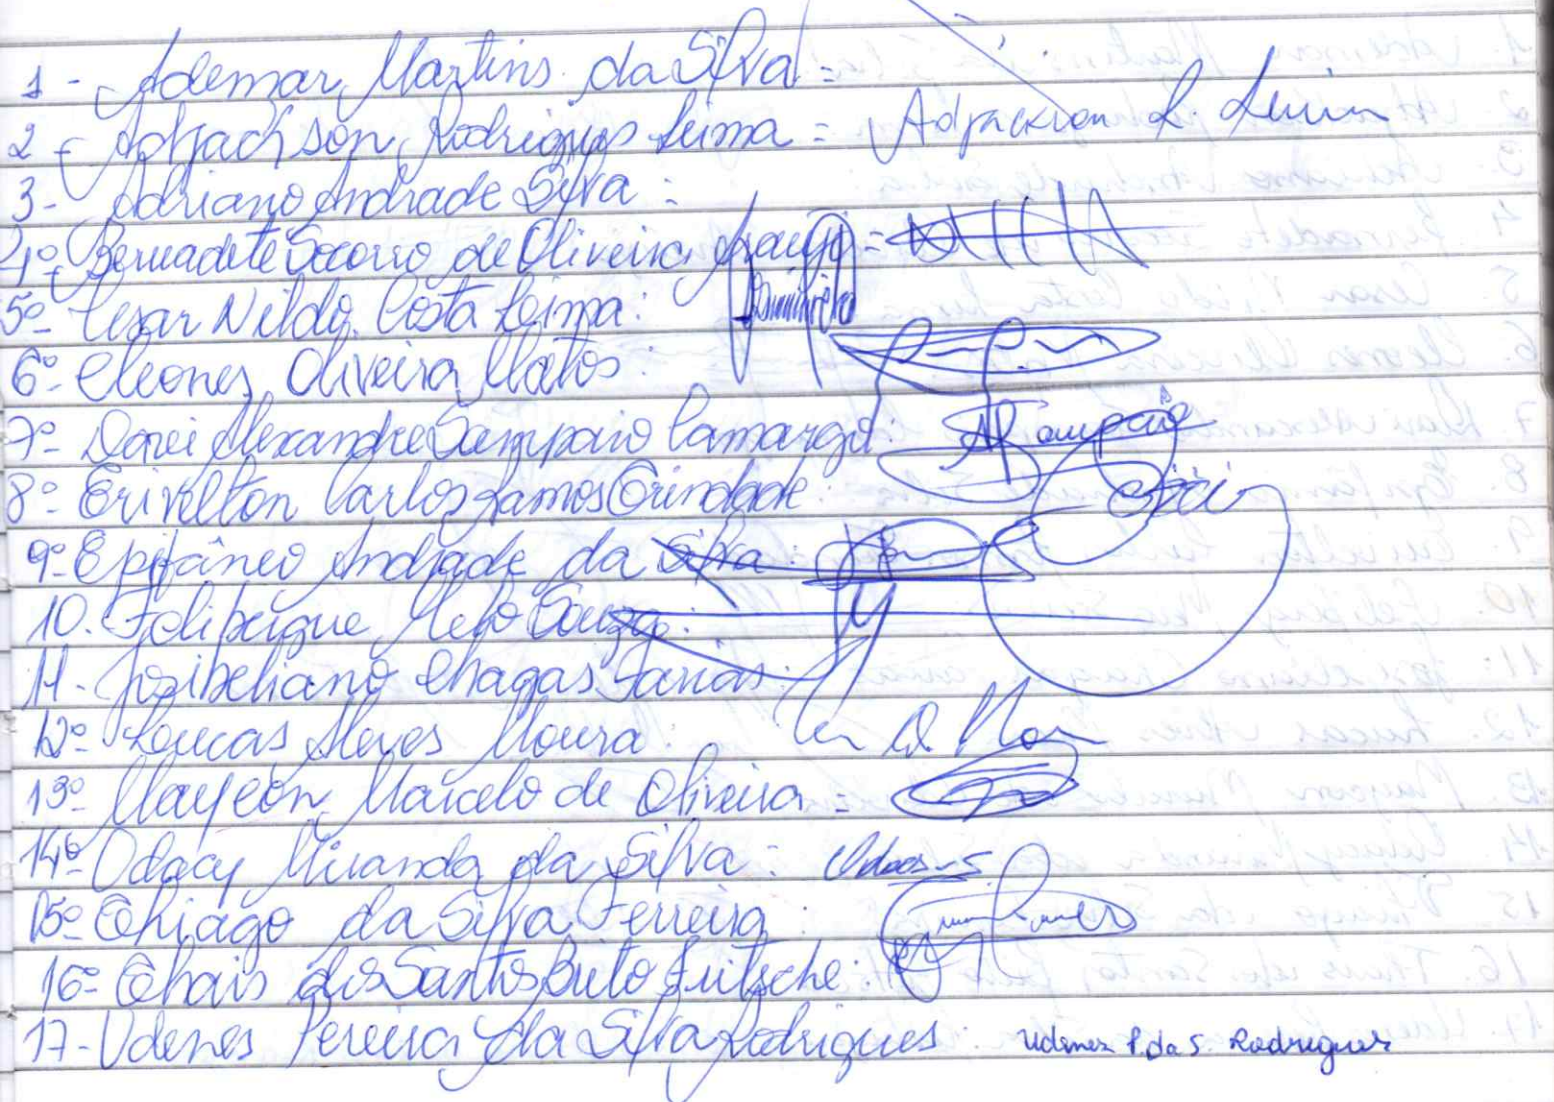 1 - Ademar Martins da Silva =
2 - Adjackson Rodrigues Leima = Adjackson R. Leima
3 - Adriano Andrade Silva :
4º Bernadete Socorro de Oliveira Araújo =
5º Cesar Nildo Costa Leima :
6º Cleones Oliveira Matos :
7º Darei Alexandre Sampaio Camargo : A Sampaio
8º Erivelton Carlos Ramos Trindade :
9º Epifâneo Andrade da Silva :
10. Felipeigue Melo Souza :
11. Josibeliano Chagas Farias :
12º Loucas Alves Moura :
13º Mayeon Marcelo de Oliveira =
14º Odacy Miranda da Silva :
15º Thiago da Silva Ferreira :
16º Thais dos Santos Brito Fritsche :
17 - Udenes Pereira da Silva Rodrigues : Udenes P. da S. Rodrigues